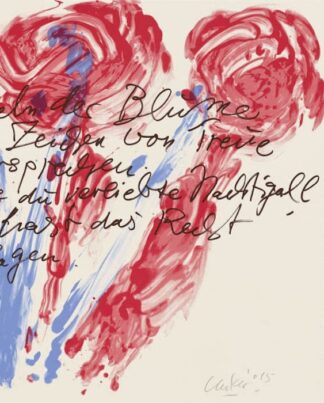 eln der Blume
Zeichen von Treue
sprechen
e du verliebte Nachtigall!
hast das Recht
agen
Uecker '15